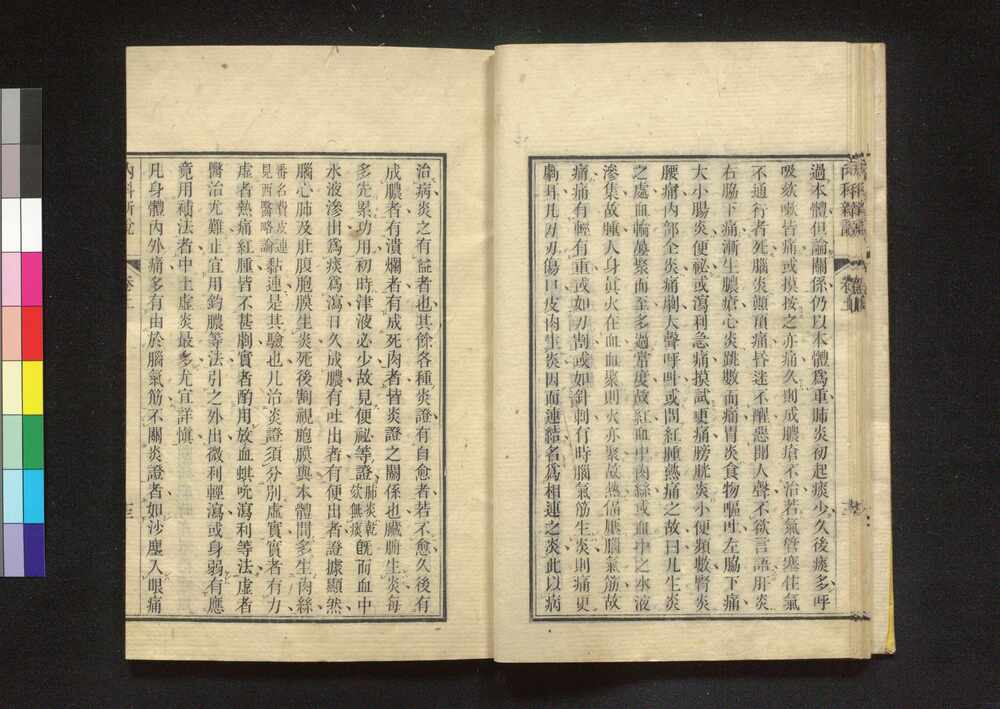 過本體但論關係仍以本體爲重肺炎初起痰少久後痰多呼
吸欬嗽皆痛或摸按之亦痛久則成膿瘡不治若氣管塞住氣
不通行者死腦炎頭頂痛昏迷不醒惡聞人聲不欲言語肝炎
右脇下痛漸生膿瘡心炎跳數而痛胃炎食物嘔吐左脇下痛
大小腸炎便祕或瀉利急痛摸試更痛膀胱炎小便頻數腎炎
腰痛內部全炎痛劇大聲呼叫或問紅腫熱痛之故曰凡生炎
之處血輪蔓聚而至多過常度故紅血中肉絲或血中之水液
滲集故腫人身眞火在血血聚則火亦聚故熱偪腦氣筋故
痛痛有輕有重或如刀割或如針刺有時腦氣筋生炎則痛更
劇耳凡刀刃傷口皮肉生炎因而連結名爲相連之炎此以病
治病炎之有益者也其餘各種炎證有自愈者若不愈久後有
成膿者有潰爛者有成死肉者皆炎證之關係也臟腑生炎每
多先累功用初時津液必少故見便祕等證肺炎乾欬無痰旣而血中
水液滲出爲痰爲瀉日久成膿有吐出者有便出者證據顯然
腦心肺及肚腹胞膜生炎死後割視胞膜與本體間多生肉絲
番名費皮連見西醫略論黏連是其驗也凡治炎證須分別虛實實者有力
虛者熱痛紅腫皆不甚劇實者酌用放血蜞吮瀉利等法虛者
醫治尤難止宜用釣膿等法引之外出微利輕瀉或身弱有應
竟用補法者中土虛炎最多尤宜詳愼
凡身體內外痛多有由於腦氣筋不關炎證者如沙塵入眼痛
內科新說
卷上
三